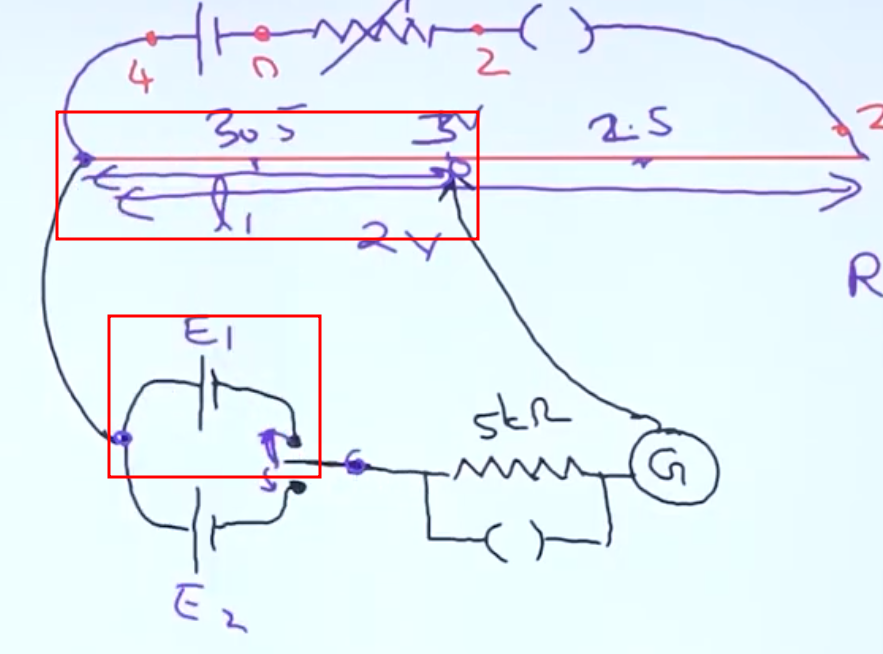 4 0 2 2
3.5 3V 2.5
l1
2V
R
E1
5kΩ
G
E2